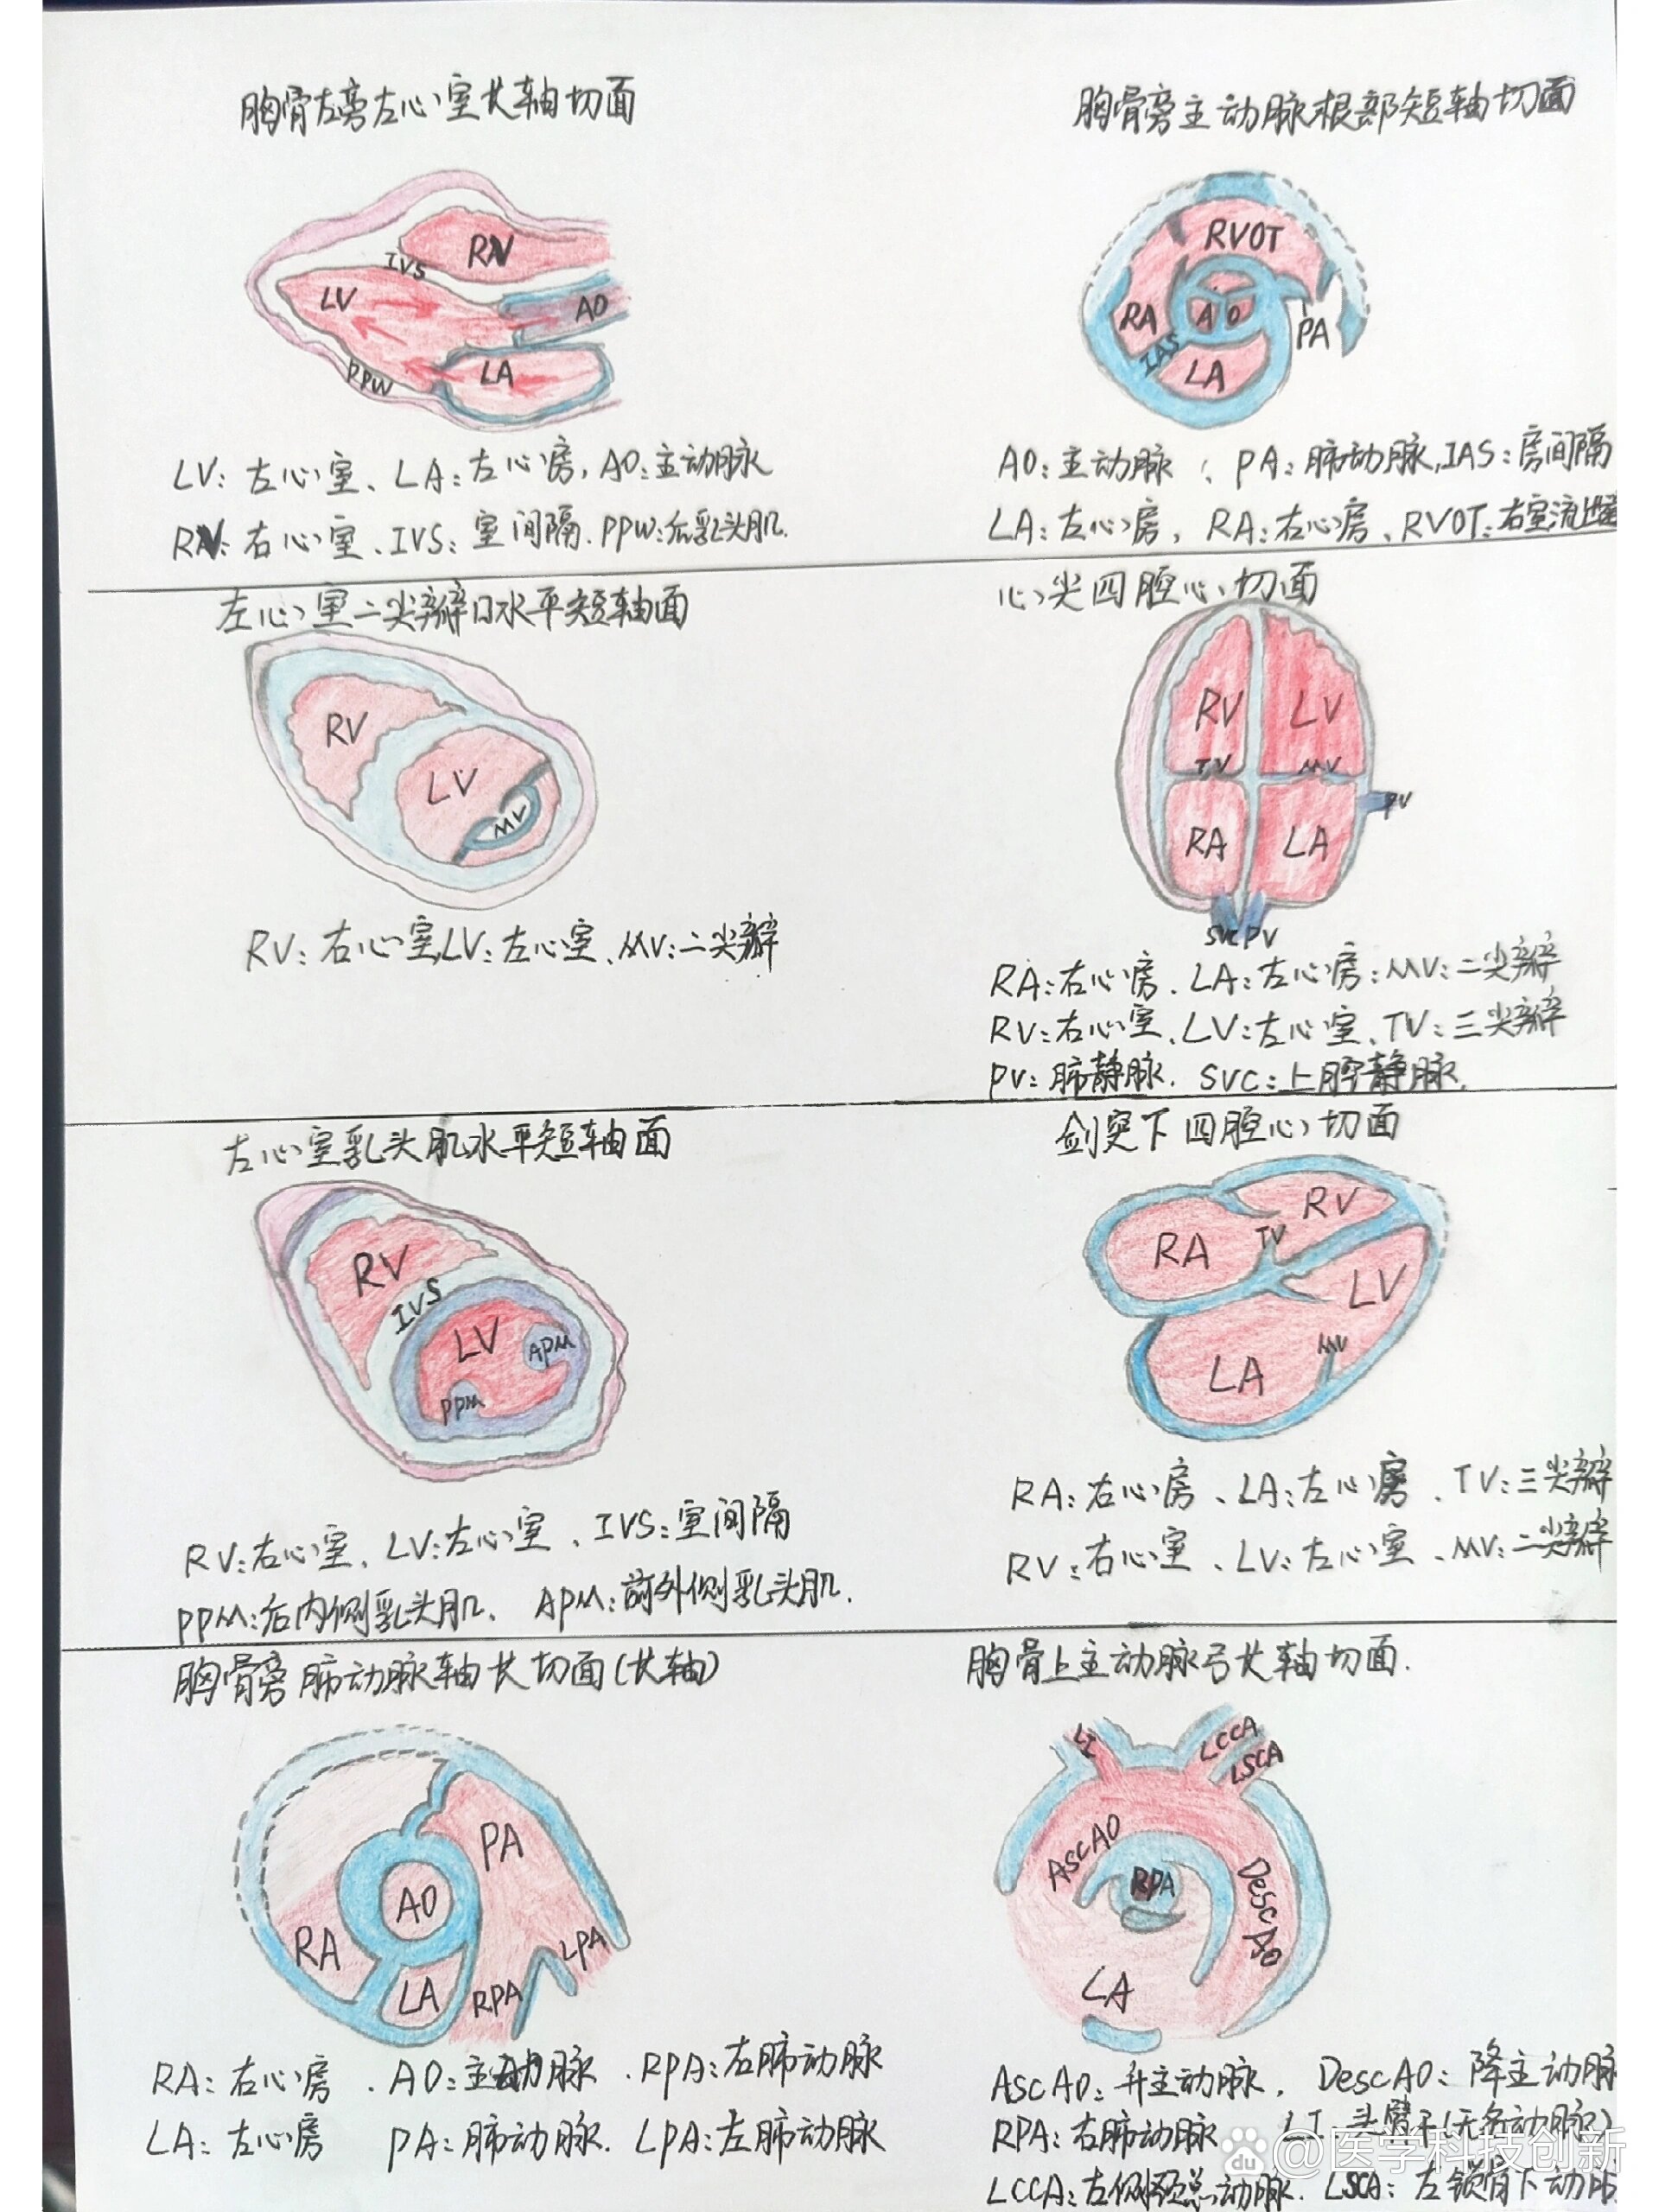 胸骨左旁左心室长轴切面
RV
IVS
LV
AO
LA
PPW
LV：左心室、LA：左心房，AO：主动脉
RV：右心室、IVS：室间隔、PPW：后乳头肌.
胸骨旁主动脉根部短轴切面
RVOT
RA
AO
PA
IAS
LA
AO：主动脉、PA：肺动脉，IAS：房间隔
LA：左心房，RA：右心房、RVOT：右室流出道
左心室二尖瓣口水平短轴面
RV
LV
MV
RV：右心室，LV：左心室、MV：二尖瓣
心尖四腔心切面
RV LV
TV MV
PV
RA LA
SVC PV
RA：右心房、LA：左心房；MV：二尖瓣
RV：右心室、LV：左心室、TV：三尖瓣
PV：肺静脉. SVC：上腔静脉.
左心室乳头肌水平短轴面
RV
IVS
LV
APM
PPM
RV：右心室、LV：左心室、IVS：室间隔
PPM：后内侧乳头肌、APM：前外侧乳头肌.
剑突下四腔心切面
RV
RA
TV
LV
MV
LA
RA：右心房、LA：左心房、TV：三尖瓣
RV：右心室、LV：左心室、MV：二尖瓣
胸骨旁肺动脉轴长切面(长轴)
PA
AO
RA
LA
RPA
LPA
RA：右心房、AO：主动脉、RPA：右肺动脉
LA：左心房 PA：肺动脉. LPA：左肺动脉
胸骨上主动脉弓长轴切面.
LI
LCCA
LSCA
AscAO
RPA
DescAO
LA
AscAO：升主动脉， DescAO：降主动脉
RPA：右肺动脉 LI：头臂干(无名动脉)
LCCA：左侧颈总动脉. LSCA：左锁骨下动脉
Bai du @医学科技创新